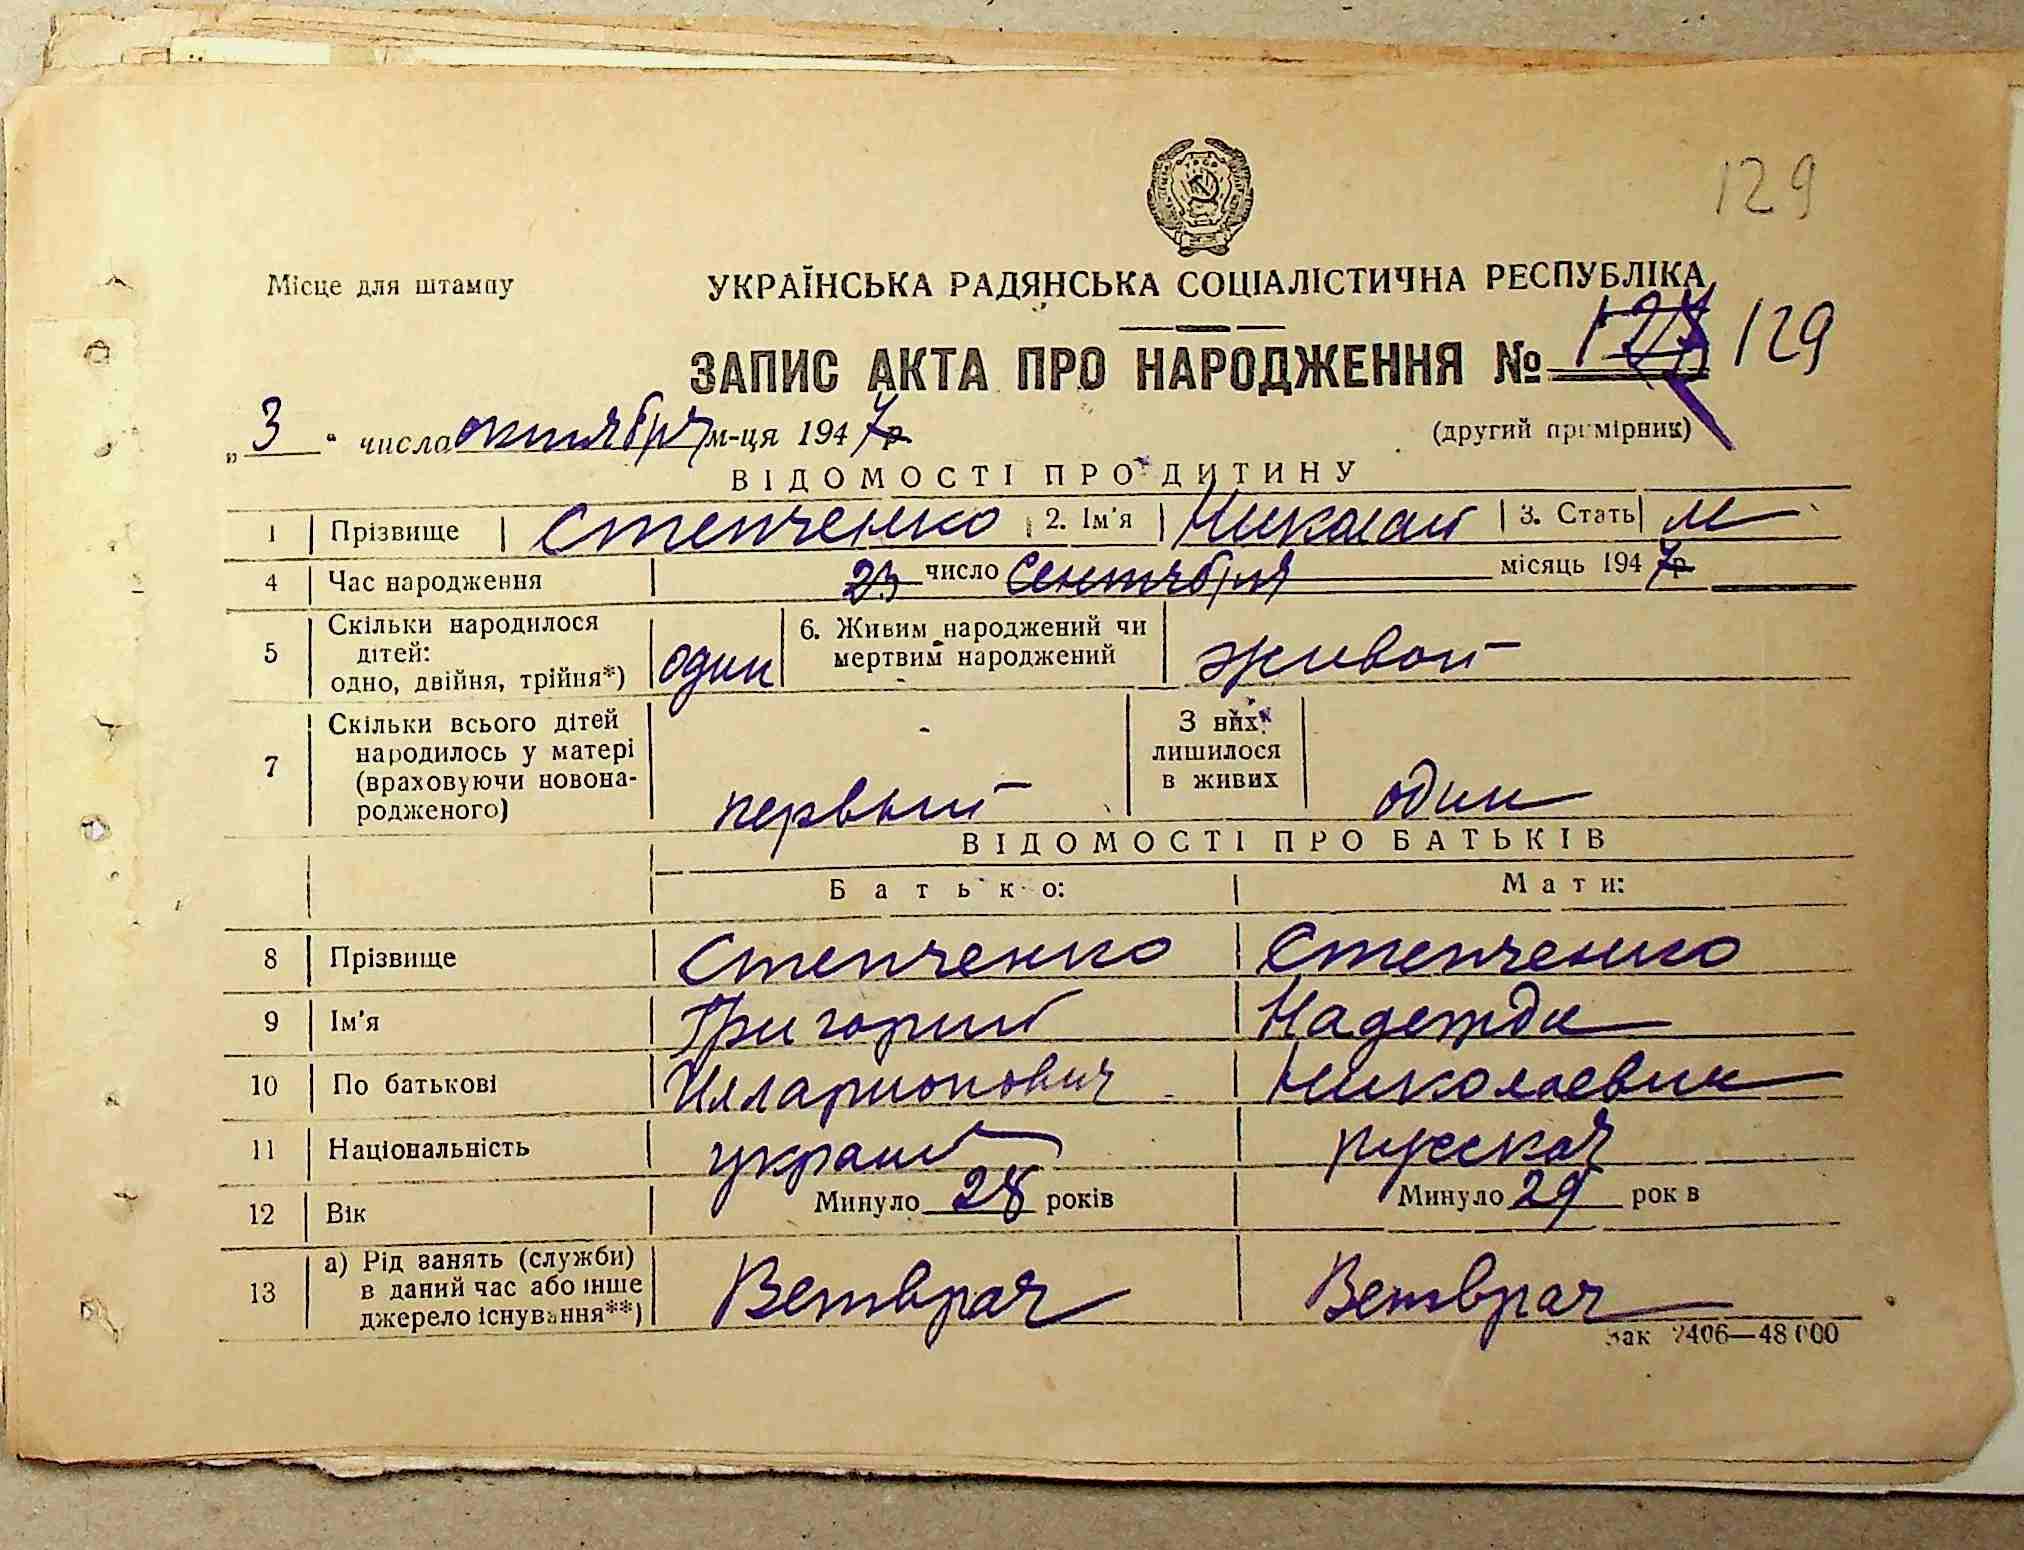 129
Місце для штампу
УКРАЇНСЬКА РАДЯНСЬКА СОЦІАЛІСТИЧНА РЕСПУБЛІКА
ЗАПИС АКТА ПРО НАРОДЖЕННЯ № 129
„ 3 “ число октября м-ця 1947 р.
(другий примірник)
ВІДОМОСТІ ПРО ДИТИНУ
1 Прізвище Степченко 2. Ім'я Николай 3. Стать м
4 Час народження 23 число Сентября місяць 1947 р.
5 Скільки народилося дітей: одно, двійня, трійня*) один 6. Живим народжений чи мертвим народжений живой
7 Скільки всього дітей народилось у матері (враховуючи новонародженого) первый З них лишилося в живих один
ВІДОМОСТІ ПРО БАТЬКІВ
Батько: Мати:
8 Прізвище Степченко Степченко
9 Ім'я Григорий Надежда
10 По батькові Илларионович Николаевна
11 Національність украин русская
12 Вік Минуло 28 років Минуло 29 років
13 а) Рід занять (служби) в даний час або інше джерело існування**) Ветврач Ветврач
Зак 2406—48 000